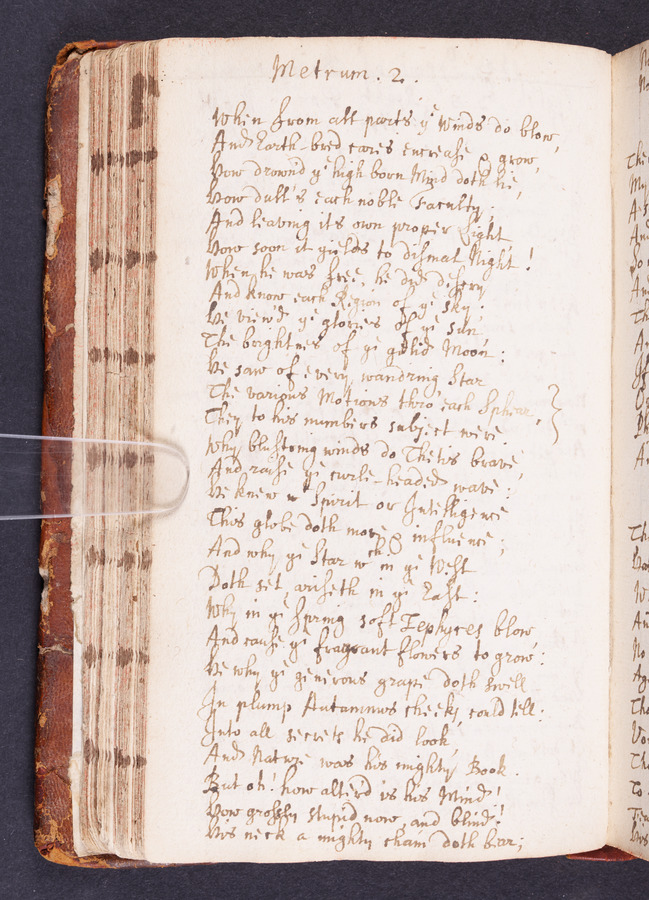 Metrum . 2 .
When from all parts ye winds do blow,
And Earth-bred cares encrease & grow,
How drown'd ye high born Mind doth lie,
How dull's each noble Faculty;
And leaving its own proper Light
How soon it yields to dismal Night!
When he was free, he did descry
And know each Region of ye sky:
He view'd ye glories of ye Sun
The brightnes of ye gelid Moon:
He saw of every wandring Star
The various Motions thro' each Sphear,
They to his numbers subject were.
Why blustring winds do Thetis brave,
And raise ye curle-headed wave:
He knew wt Spirit or Intelligence
This globe doth move & influence;
And why ye Star wch in ye West
Doth set, ariseth in ye East:
Why in ye Spring soft Zephyres blow,
And cause ye fragrant flowers to grow:
He why ye generous grape doth swell
In plump Autumnus cheeks, could tell:
Into all secrets he did look,
And Nature was his mighty Book.
But oh! how alter'd is his Mind!
How grossly stupid now, and blind!
His neck a mighty chain doth bear;